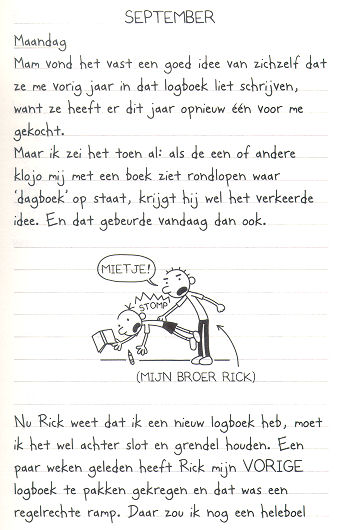 SEPTEMBER
Maandag
Mam vond het vast een goed idee van zichzelf dat
ze me vorig jaar in dat logboek liet schrijven,
want ze heeft er dit jaar opnieuw één voor me
gekocht.
Maar ik zei het toen al: als de een of andere
klojo mij met een boek ziet rondlopen waar
'dagboek' op staat, krijgt hij wel het verkeerde
idee. En dat gebeurde vandaag dan ook.
MIETJE!
STOMP!
(MIJN BROER RICK)
Nu Rick weet dat ik een nieuw logboek heb, moet
ik het wel achter slot en grendel houden. Een
paar weken geleden heeft Rick mijn VORIGE
logboek te pakken gekregen en dat was een
regelrechte ramp. Daar zou ik nog een heleboel